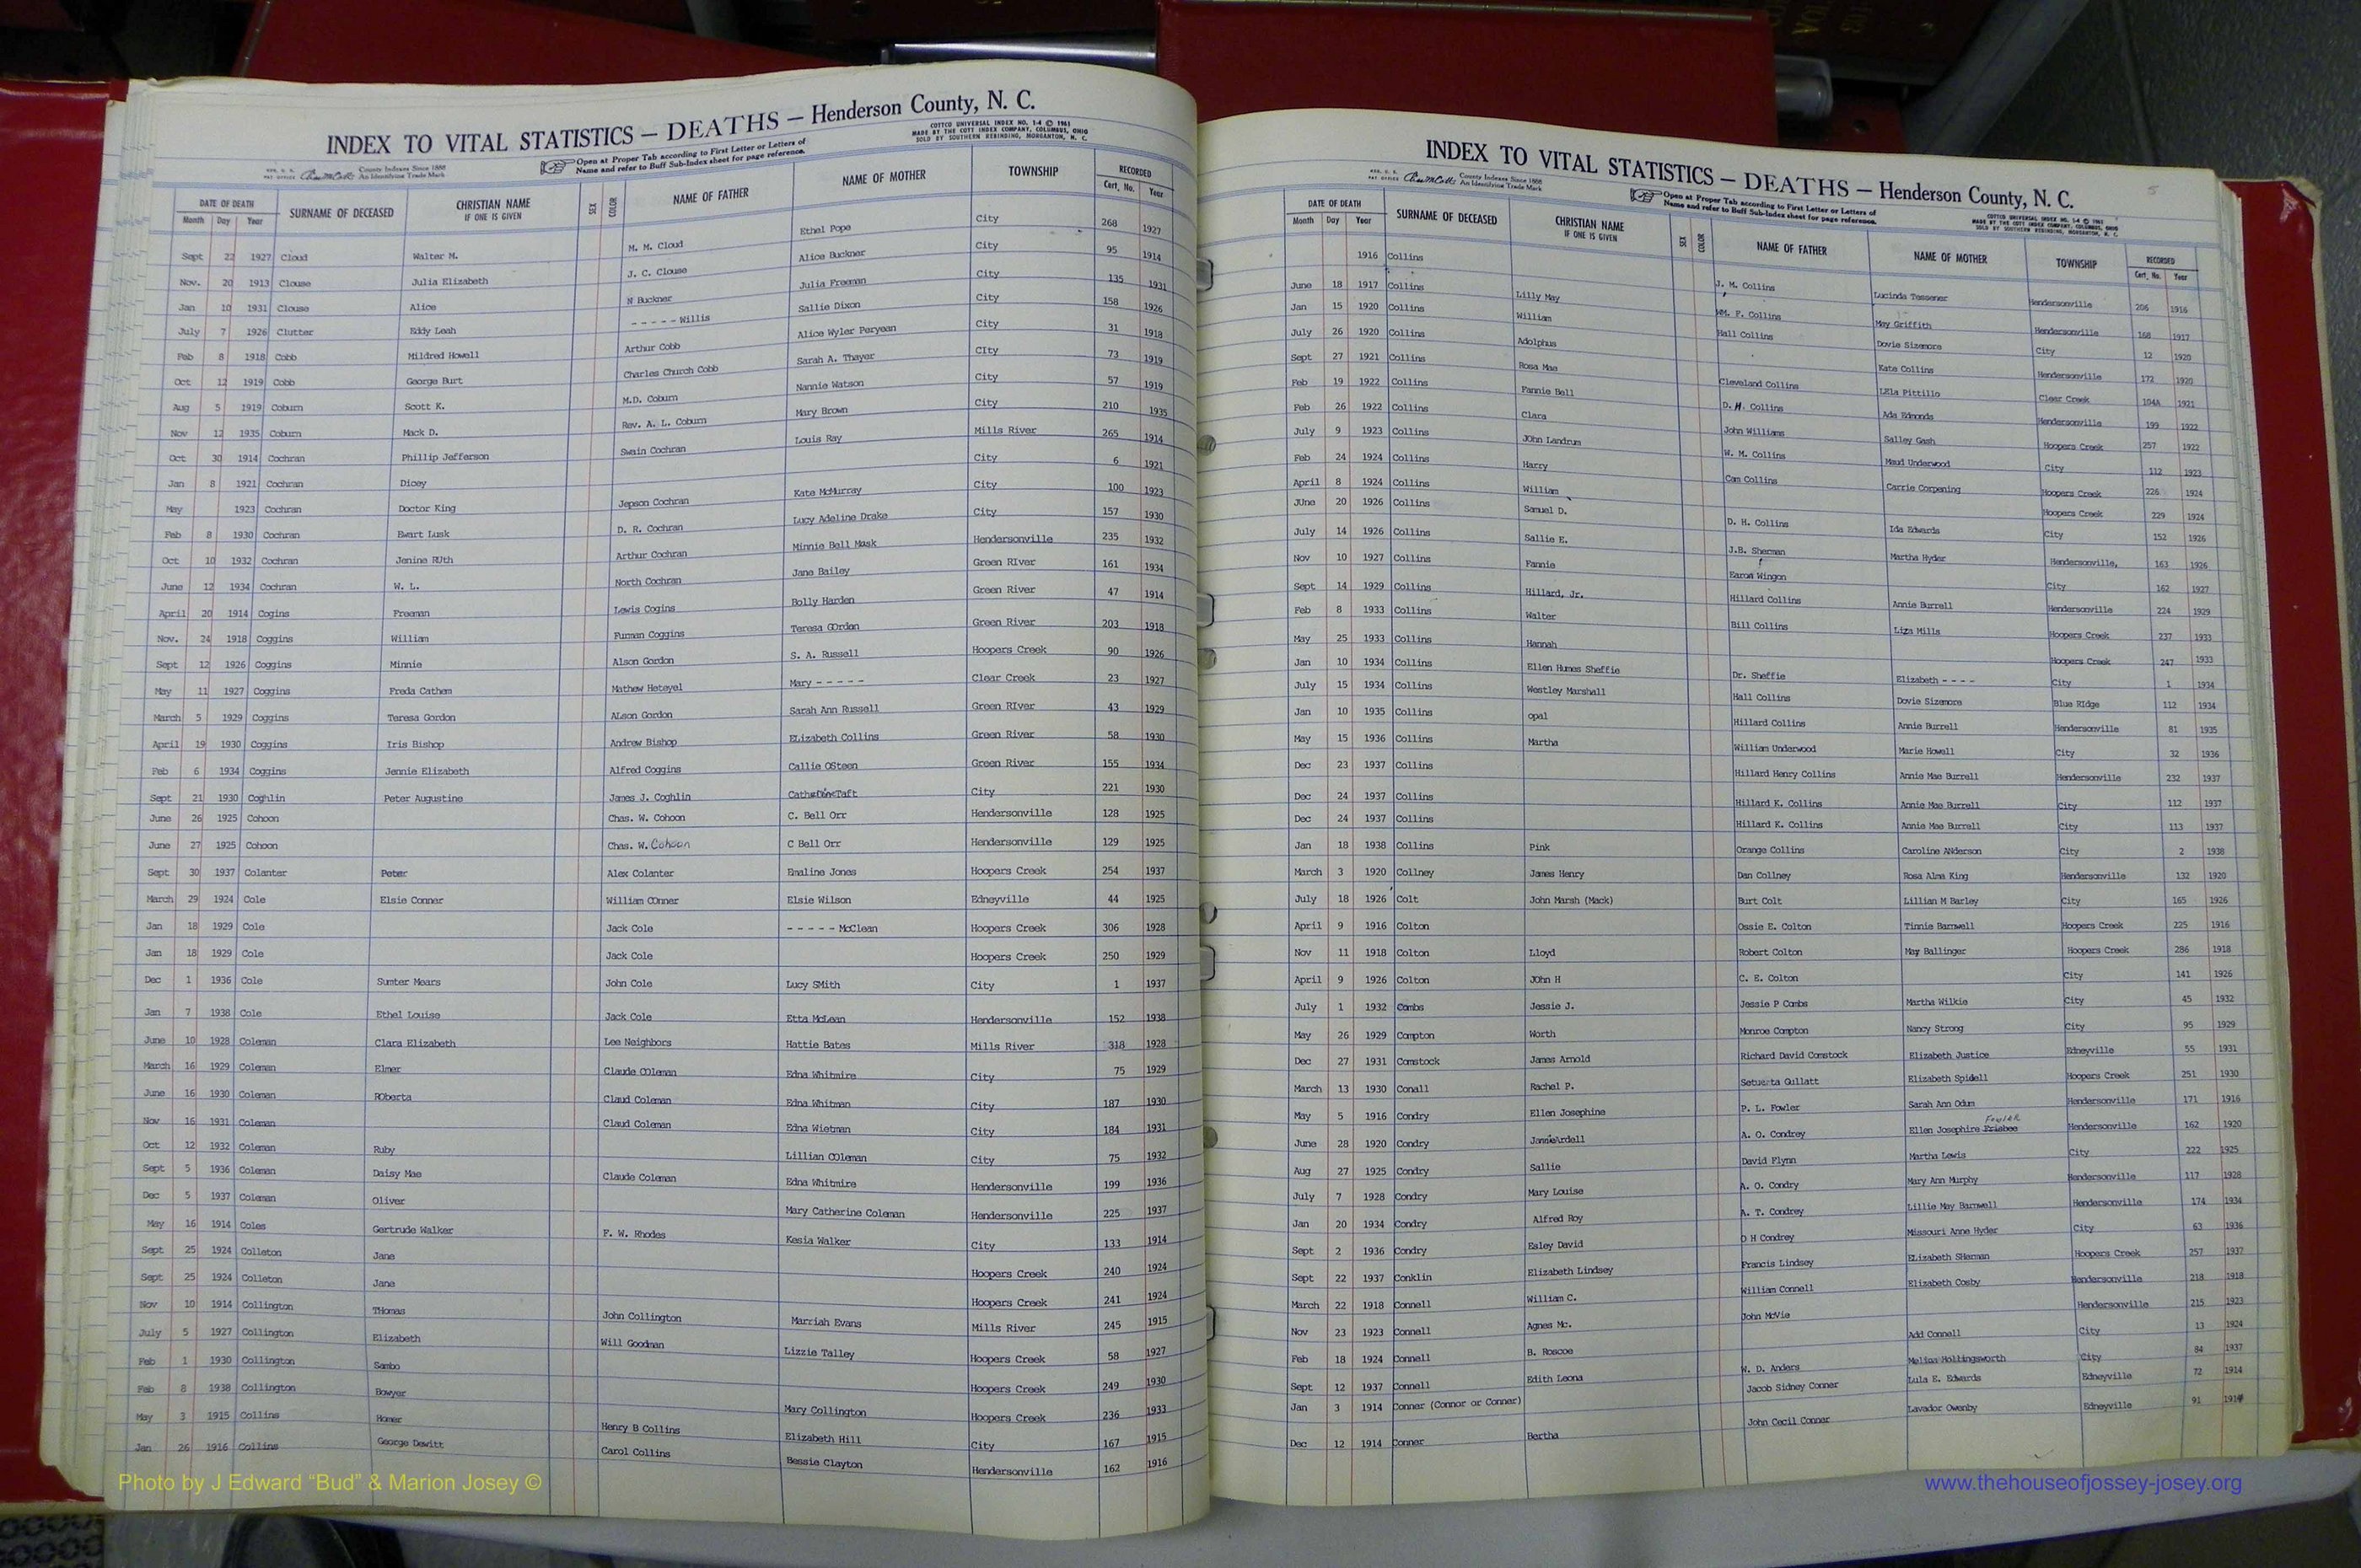 INDEX TO VITAL STATISTICS — DEATHS — Henderson County, N. C.
COTTCO UNIVERSAL INDEX NO. 1-4 © 1961
MADE BY THE COTT INDEX COMPANY, COLUMBUS, OHIO
SOLD BY SOUTHERN REBINDING, MORGANTON, N. C.
County Indexes Since 1888
An Identifying Trade Mark
Open at Proper Tab according to First Letter or Letters of
Name and refer to Buff Sub-Index sheet for page reference.
DATE OF DEATH SURNAME OF DECEASED CHRISTIAN NAME IF ONE IS GIVEN SEX COLOR NAME OF FATHER NAME OF MOTHER TOWNSHIP RECORDED
Month Day Year Cert. No. Year
Sept 22 1927 Cloud Walter M. M. M. Cloud Ethel Pope City 268 1927
Nov. 20 1913 Clouse Julia Elizabeth J. C. Clouse Alice Buckner City 95 1914
Jan 10 1931 Clouse Alice N Buckner Julia Freeman City 135 1931
July 7 1926 Clutter Eddy Leah - - - - - Willis Sallie Dixon City 158 1926
Feb 8 1918 Cobb Mildred Howell Arthur Cobb Alice Wyler Peryean City 31 1918
Oct 12 1919 Cobb George Burt Charles Church Cobb Sarah A. Thayer CIty 73 1919
Aug 5 1919 Coburn Scott K. M.D. Coburn Nannie Watson City 57 1919
Nov 12 1935 Coburn Mack D. Rev. A. L. Coburn Mary Brown City 210 1935
Oct 30 1914 Cochran Phillip Jefferson Swain Cochran Louis Ray Mills River 265 1914
Jan 8 1921 Cochran Dicey City 6 1921
May 1923 Cochran Doctor King Jepson Cochran Kate McMurray City 100 1923
Feb 8 1930 Cochran Ewart Lusk D. R. Cochran Lucy Adeline Drake City 157 1930
Oct 10 1932 Cochran Jenine RUth Arthur Cochran Minnie Bell Musk Hendersonville 235 1932
June 12 1934 Cochran W. L. North Cochran Jane Bailey Green RIver 161 1934
April 20 1914 Cogins Freeman Lewis Cogins Bolly Harden Green River 47 1914
Nov. 24 1918 Coggins William Furman Coggins Teresa GOrdan Green River 203 1918
Sept 12 1926 Coggins Minnie Alson Gordon S. A. Russell Hoopers Creek 90 1926
May 11 1927 Coggins Freda Cathem Mathew Heteyel Mary - - - - - Clear Creek 23 1927
March 5 1929 Coggins Teresa Gordon ALson Gordon Sarah Ann Russell Green RIver 43 1929
April 19 1930 Coggins Iris Bishop Andrew Bishop ELizabeth Collins Green River 58 1930
Feb 6 1934 Coggins Jennie Elizabeth Alfred Coggins Callie OSteen Green River 155 1934
Sept 21 1930 Coghlin Peter Augustine James J. Coghlin Taft City 221 1930
June 26 1925 Cohoon Chas. W. Cohoon C. Bell Orr Hendersonville 128 1925
June 27 1925 Cohoon Chas. W. Cohoon C Bell Orr Hendersonville 129 1925
Sept 30 1937 Colanter Peter Alex Colanter Emaline Jones Hoopers Creek 254 1937
March 29 1924 Cole Elsie Conner William COnner Elsie Wilson Edneyville 44 1925
Jan 18 1929 Cole Jack Cole - - - - - McClean Hoopers Creek 306 1928
Jan 18 1929 Cole Jack Cole Hoopers Creek 250 1929
Dec 1 1936 Cole Sumter Mears John Cole Lucy SMith City 1 1937
Jan 7 1938 Cole Ethel Louise Jack Cole Etta McLean Hendersonville 152 1938
June 10 1928 Coleman Clara Elizabeth Lee Neighbors Hattie Bates Mills River 318 1928
March 16 1929 Coleman Elmer Claude COleman Edna Whitmire City 75 1929
June 16 1930 Coleman ROberta Claud Coleman Edna Whitman City 187 1930
Nov 16 1931 Coleman Claud Coleman Edna Wietman City 184 1931
Oct 12 1932 Coleman Ruby Lillian COleman City 75 1932
Sept 5 1936 Coleman Daisy Mae Claude Coleman Edna Whitmire Hendersonville 199 1936
Dec 5 1937 Coleman Oliver Mary Catherine Coleman Hendersonville 225 1937
May 16 1914 Coles Gertrude Walker F. W. Rhodes Kesia Walker City 133 1914
Sept 25 1924 Colleton Jane Hoopers Creek 240 1924
Sept 25 1924 Colleton Jane Hoopers Creek 241 1924
Nov 10 1914 Collington THomas John Collington Marriah Evans Mills River 245 1915
July 5 1927 Collington Elizabeth Will Goodman Lizzie Talley Hoopers Creek 58 1927
Feb 1 1930 Collington Sambo Hoopers Creek 249 1930
Feb 8 1938 Collington Bowyer Mary Collington Hoopers Creek 236 1933
May 3 1915 Collins Homer Henry B Collins Elizabeth Hill City 167 1915
Jan 26 1916 Collins George Dewitt Carol Collins Bessie Clayton Hendersonville 162 1916
Photo by J Edward “Bud” & Marion Josey ©
INDEX TO VITAL STATISTICS — DEATHS — Henderson County, N. C.
County Indexes Since 1888
An Identifying Trade Mark
Open at Proper Tab according to First Letter or Letters of
Name and refer to Buff Sub-Index sheet for page reference.
COTTCO UNIVERSAL INDEX NO. 1-4 © 1961
MADE BY THE COTT INDEX COMPANY, COLUMBUS, OHIO
SOLD BY SOUTHERN REBINDING, MORGANTON, N. C.
DATE OF DEATH SURNAME OF DECEASED CHRISTIAN NAME IF ONE IS GIVEN SEX COLOR NAME OF FATHER NAME OF MOTHER TOWNSHIP RECORDED
Month Day Year Cert. No. Year
1916 Collins J. M. Collins Lucinda Tessener Hendersonville 206 1916
June 18 1917 Collins Lilly May WM. F. Collins May Griffith Hendersonville 168 1917
Jan 15 1920 Collins William Hall Collins Dovie Sizemore City 12 1920
July 26 1920 Collins Adolphus Kate Collins Hendersonville 172 1920
Sept 27 1921 Collins Rosa Mae Cleveland Collins LEla Pittillo Clear Creek 104A 1921
Feb 19 1922 Collins Fannie Bell D. H. Collins Ada Edmonds Hendersonville 199 1922
Feb 26 1922 Collins Clara John Williams Salley Gash Hoopers Creek 257 1922
July 9 1923 Collins JOhn Landrum W. M. Collins Maud Underwood City 112 1923
Feb 24 1924 Collins Harry Cam Collins Carrie Corpening Hoopers Creek 226 1924
April 8 1924 Collins William Hoopers Creek 229 1924
JUne 20 1926 Collins Samuel D. D. H. Collins Ida Edwards City 152 1926
July 14 1926 Collins Sallie E. J.B. Sherman Martha Hyder Hendersonville, 163 1926
Nov 10 1927 Collins Fannie Earom Wingon City 162 1927
Sept 14 1929 Collins Hillard, Jr. Hillard Collins Annie Burrell Hendersonville 224 1929
Feb 8 1933 Collins Walter Bill Collins Liza Mills Hoopers Creek 237 1933
May 25 1933 Collins Hannah Hoopers Creek 247 1933
Jan 10 1934 Collins Ellen Humes Sheffie Dr. Sheffie Elizabeth - - - - City 1 1934
July 15 1934 Collins Westley Marshall Hall Collins Dovie Sizemore Blue RIdge 112 1934
Jan 10 1935 Collins opal Hillard Collins Annie Burrell Hendersonville 81 1935
May 15 1936 Collins Martha William Underwood Marie Howell City 32 1936
Dec 23 1937 Collins Hillard Henry Collins Annie Mae Burrell Hendersonville 232 1937
Dec 24 1937 Collins Hillard K. Collins Annie Mae Burrell City 112 1937
Dec 24 1937 Collins Hillard K. Collins Annie Mae Burrell City 113 1937
Jan 18 1938 Collins Pink Orange Collins Caroline ANderson City 2 1938
March 3 1920 Collney James Henry Dan Collney Rosa Alma King Hendersonville 132 1920
July 18 1926 Colt John Marsh (Mack) Burt Colt Lillian M Barley City 165 1926
April 9 1916 Colton Ossie E. Colton Tinnie Barnwell Hoopers Creek 225 1916
Nov 11 1918 Colton Lloyd Robert Colton May Ballinger Hoopers Creek 286 1918
April 9 1926 Colton JOhn H C. E. Colton City 141 1926
July 1 1932 Combs Jessie J. Jessie P Combs Martha Wilkie City 45 1932
May 26 1929 Compton Worth Monroe Compton Nancy Strong City 95 1929
Dec 27 1931 Comstock James Arnold Richard David Comstock Elizabeth Justice Edneyville 55 1931
March 13 1930 Conall Rachel P. Gullatt Elizabeth Spidell Hoopers Creek 251 1930
May 5 1916 Condry Ellen Josephine P. L. Fowler Sarah Ann Odum Hendersonville 171 1916
June 28 1920 Condry A. O. Condrey Ellen Josephire Frisbee Fowler Hendersonville 162 1920
Aug 27 1925 Condry Sallie David Flynn Martha Lewis City 222 1925
July 7 1928 Condry Mary Louise A. O. Condry Mary Ann Murphy Hendersonville 117 1928
Jan 20 1934 Condry Alfred Roy A. T. Condrey Lillie May Barnwell Hendersonville 174 1934
Sept 2 1936 Condry Esley David D H Condrey Missouri Anne Hyder City 63 1936
Sept 22 1937 Conklin Elizabeth Lindsey Francis Lindsey ELizabeth SHerman Hoopers Creek 257 1937
March 22 1918 Connell William C. William Connell Elizabeth Cosby Hendersonville 218 1918
Nov 23 1923 Connell Agnes Mc. John McVie Hendersonville 215 1923
Feb 18 1924 Connell B. Roscoe Add Connell City 13 1924
Sept 12 1937 Connell Edith Leona W. D. Anders Melina Hollingsworth City 84 1937
Jan 3 1914 Conner (Connor or Conner) Jacob Sidney Conner Lula E. Edwards Edneyville 72 1914
Dec 12 1914 Conner Bertha John Cecil Conner Lavador Owenby Edneyville 91 1914
www.thehouseofjossey-josey.org